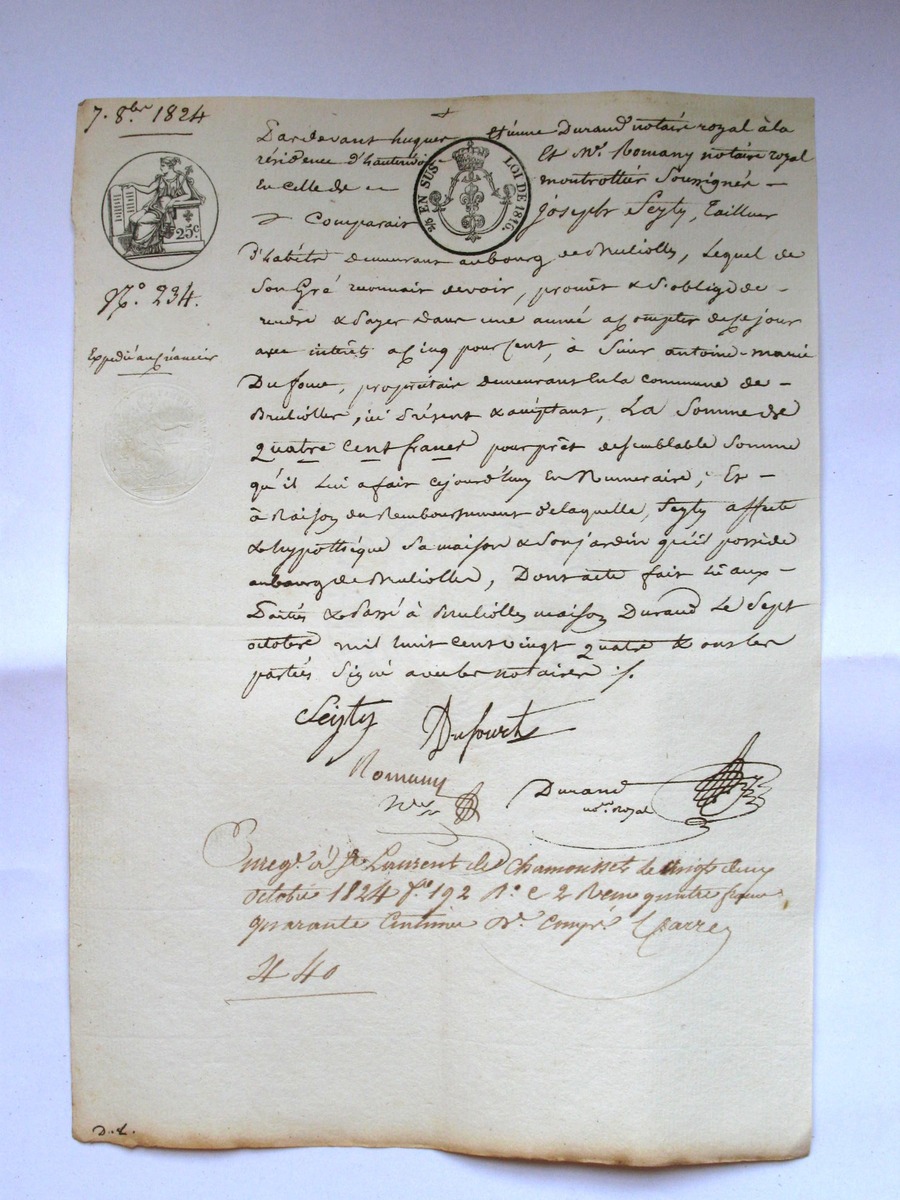 7. 8bre 1824
25c
No. 234.
Expedié au créancier
EN SUS LOI DE 1816.
Pardevant hugues Etienne Durand notaire royal à la
résidence d'hauterivoire Et Mre. Romany notaire royal
En celle de montrottier Soussignés –
Comparait Joseph Seyty, Tailleur
D'habits demeurant au bourg de Brulliolles, Lequel de
Son Gré reconnait devoir, promêt & S'oblige de –
rendre & Payer dans une année a Compter de ce jour
avec intérêts a Cinq pour Cent, à Sieur antoine-marie
Dufour, propriétaire demeurant En la commune de –
Brulliolles, ici Présent & acceptant, La Somme de
Quatre Cent francs pour prêt de semblable Somme
qu'il Lui a fait cejourd'huy En Numeraire; Et –
à Raison du Remboursement de laquelle, Seyty affecte
& hypothèque Sa maison & Son jardin qu'il possède
au bourg de Brulliolles, Dont acte fait Lû aux –
Parties & Passé à Brulliolles maison Durand Le Sept
octobre mil huit Cent vingt quatre & ont les
parties Signé avec les notaires ./.
Seyty Dufourt
Romany
Nre Durand
nore Royal
Enregé. à St Laurent de Chamousset le vingt deux
octobre 1824 fo. 192 Ro. C 2 Reçu quatre francs
quarante Centimes De. Compé. Carre
4 40
D. L.